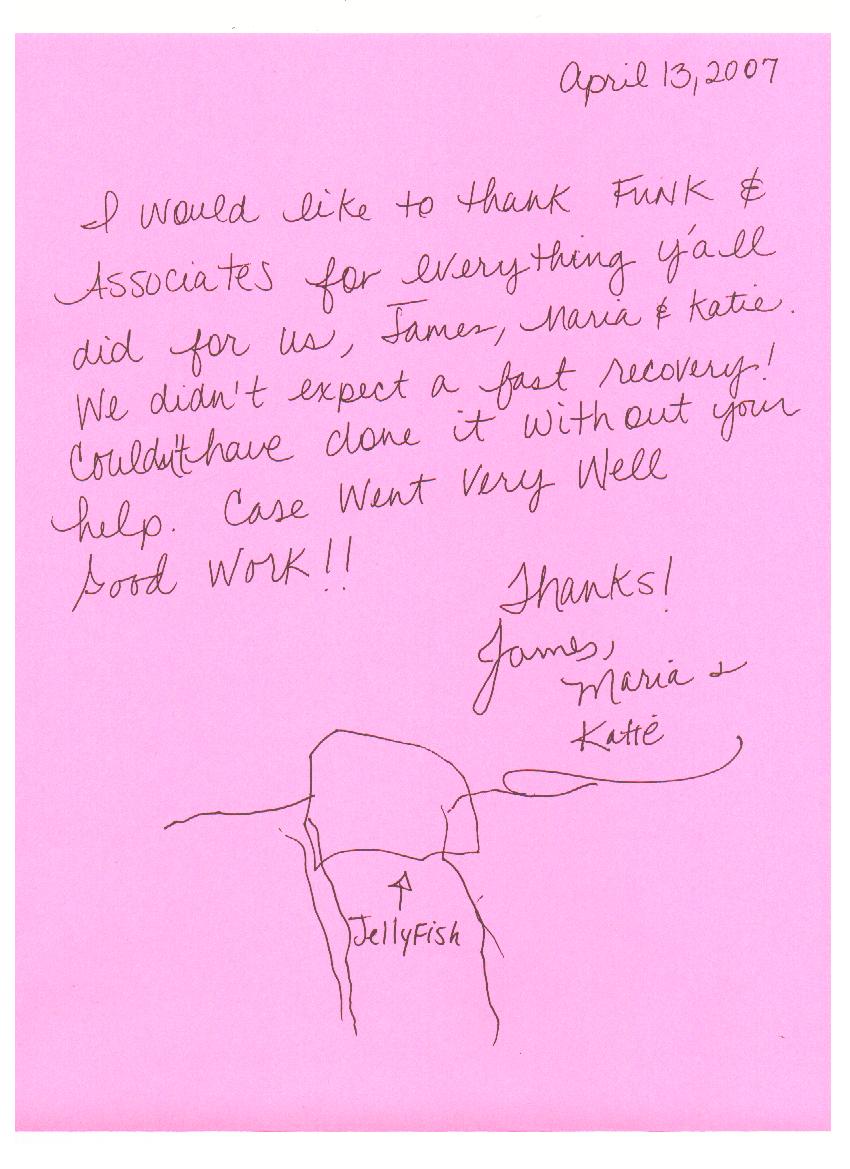 April 13, 2007
I would like to thank Funk &
Associates for everything y'all
did for us, James, Maria & Katie.
We didn't expect a fast recovery!
Couldn't have done it without your
help. Case Went Very Well
Good Work!!
Thanks!
James,
Maria &
Katie
JellyFish